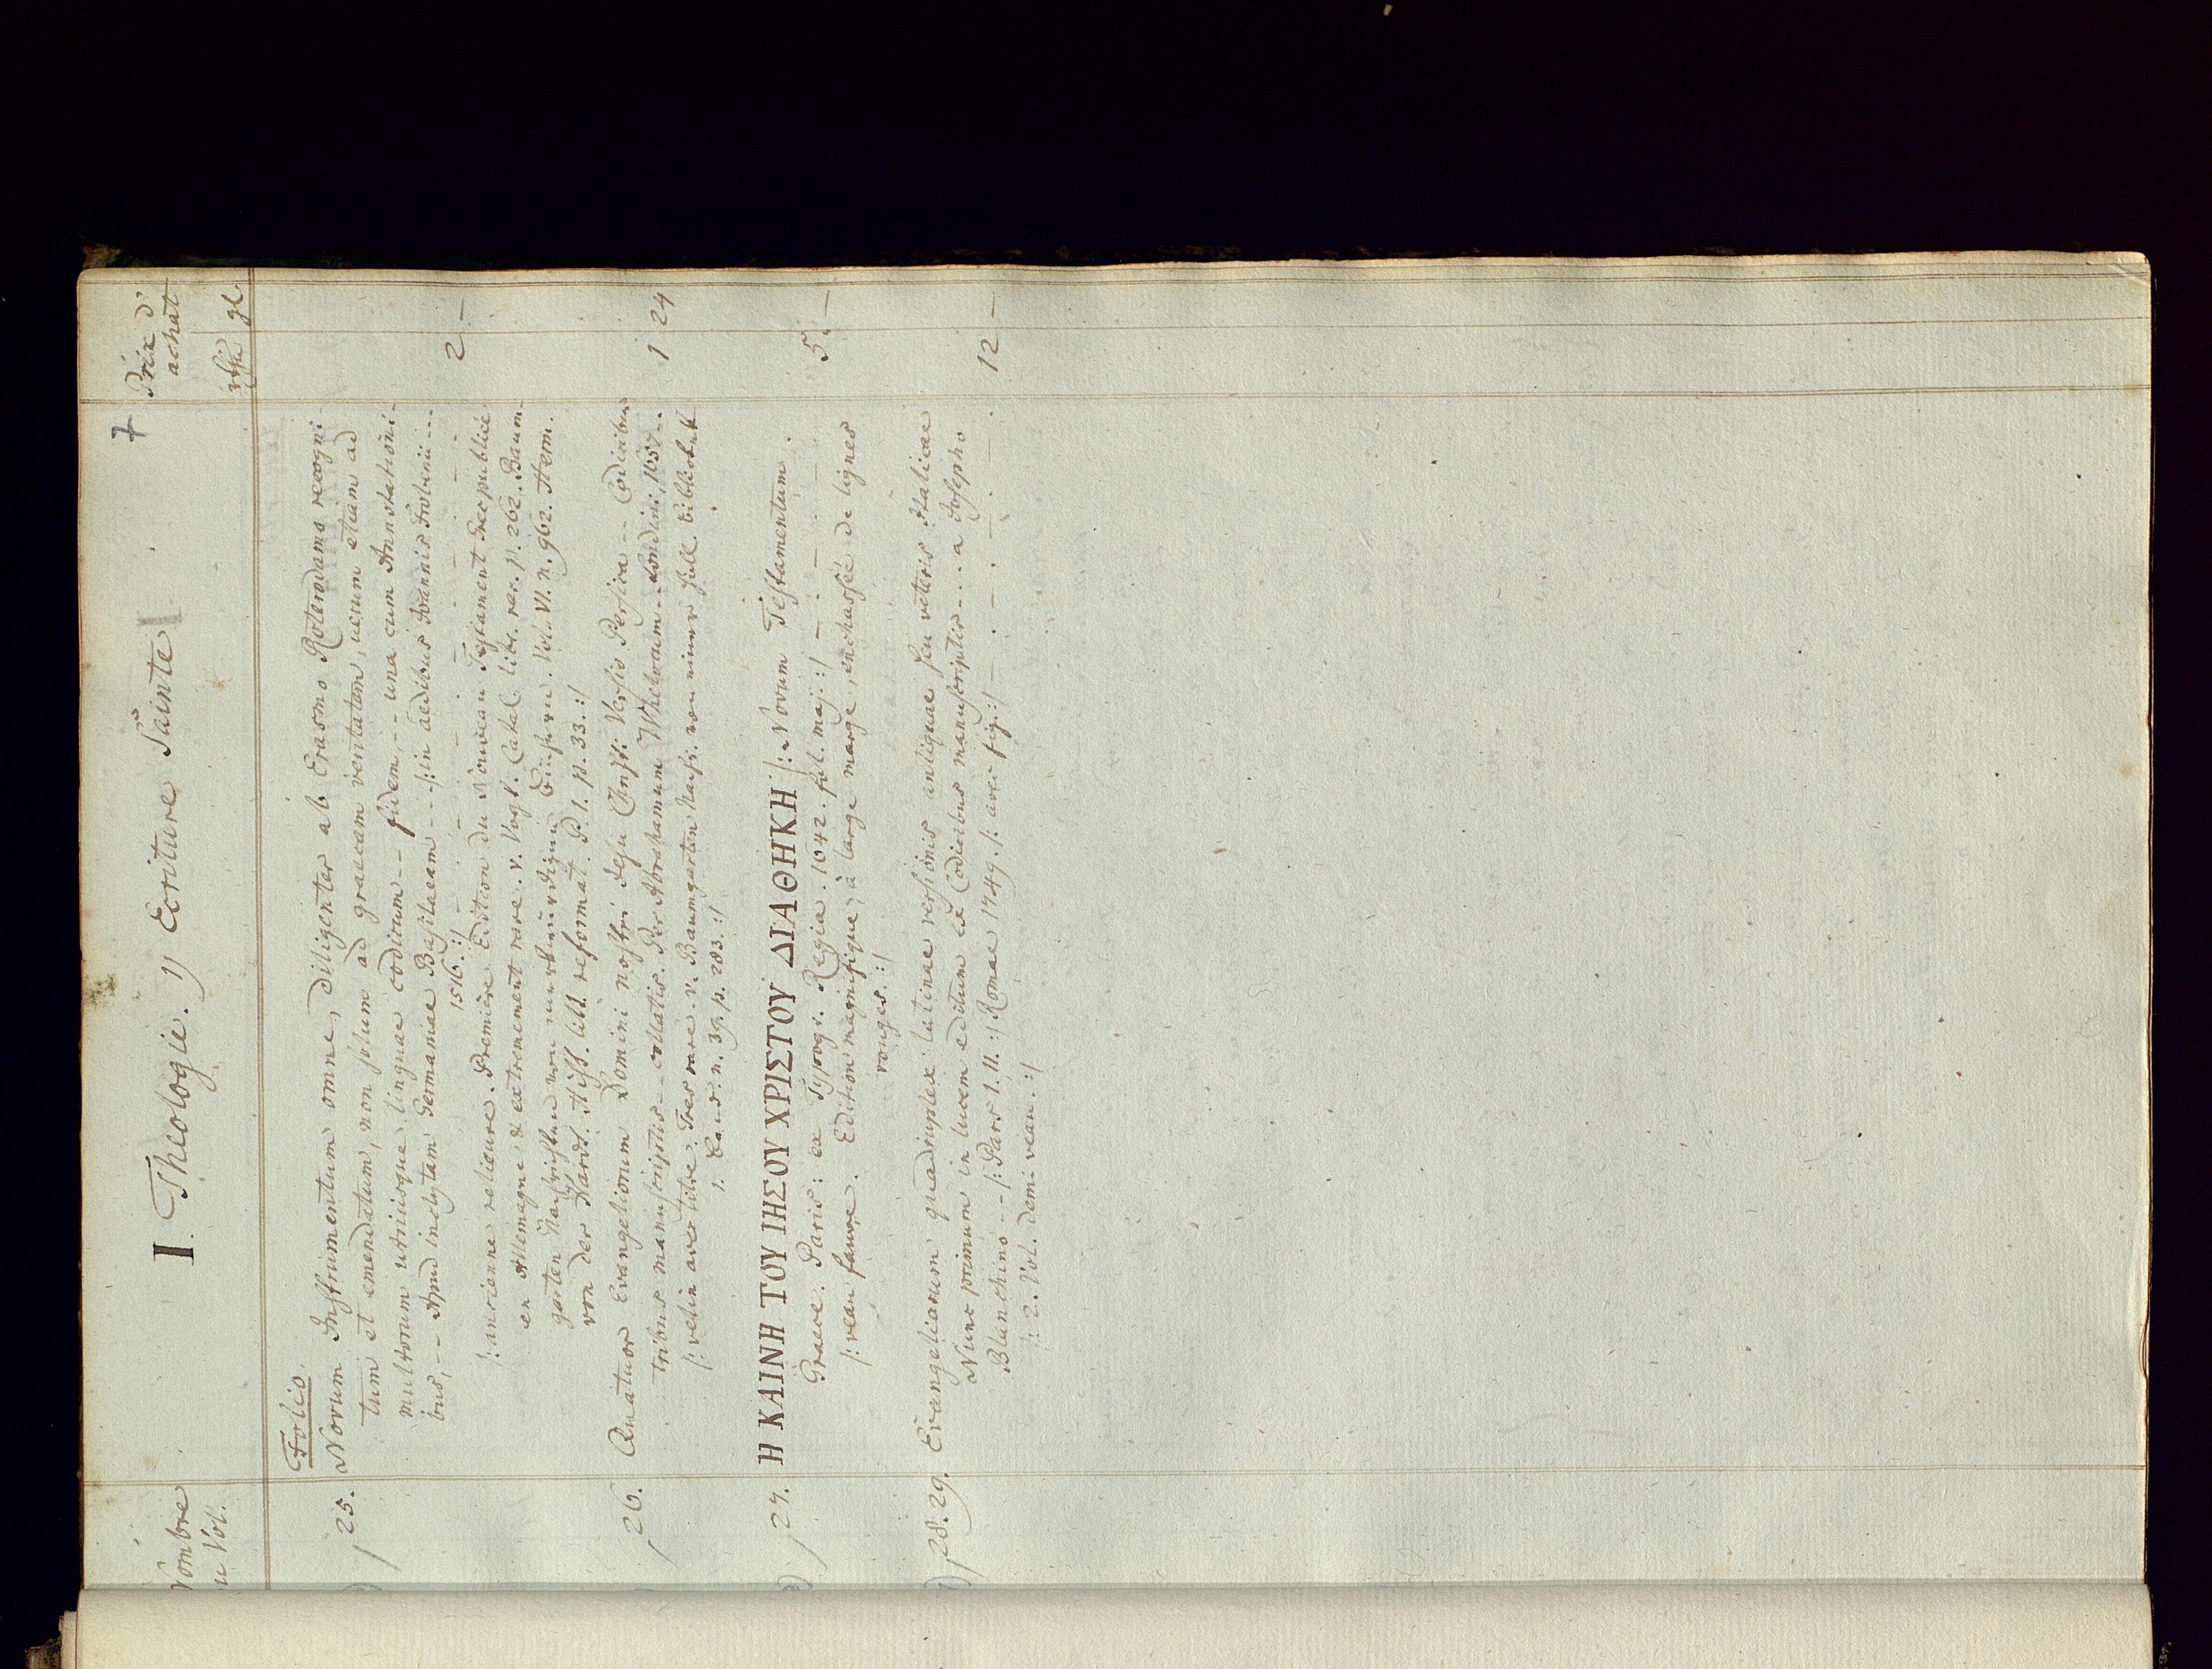 7
I. Theologie. 1) Ecriture Sainte
Nombre
u Vol.
Prix d'
achat
gl.
Folio.
25. Novum Instrumentum omne, diligenter ab Erasmo Roterodamo recogni-
tum et emendatum, non solum ad graecam veritatem, uerum etiam ad
multorum utriusque linguae codicum -- fidem, -- una cum Annotationi-
bus, -- Apud inclytam Germaniae Basilaeam -- /: in aedibus Ioannis Frobenii ...
1516. :/ 2 —
/: ancienne relieure. Première Edition du Nouveau Testament Grec publiée
en Allemagne & extremement rare. v. Vogt. Catal. libr. rar. p. 262. Baum-
garten Nachrichten von merkwürdigen Büchern. Vol. VI. n. 962. Herm.
von der Hardt. Hist. litt. reformat. P. 1. p. 33. :/
26. Quatuor Evangeliorum Domini nostri Jesu Christi Versio Persica -- Codicibus
tribus manuscriptis -- collatis. Per Abrahamum Whelocum -- Londini, 1657. 1 24
/: velin avec titre. Tres rare. v. Baumgarten Nachr. von einer hall. Bibliothek
1. Band. n. 39. p. 283. :/
27. Η ΚΑΙΝΗ ΤΟΥ ΙΗΣΟΥ ΧΡΙΣΤΟΥ ΔΙΑΘΗΚΗ /: Novum Testamentum
Graece. Paris: ex Typogr. Regia. 1642. fol. maj. :/ 5. —
/: veau fauve. Edition magnifique, à large marge, enchassée de lignes
rouges. :/
28. 29. Evangeliarum quadruplex latinae versionis antiquae seu veteris Italicae
Nunc primum in lucem editum ex Codicibus manuscriptis ... a Josepho
Blanchino -- /: Pars I. II. :/ Romae 1749. /: avec fig. :/ 12 —
/: 2. Vol. demi veau. :/